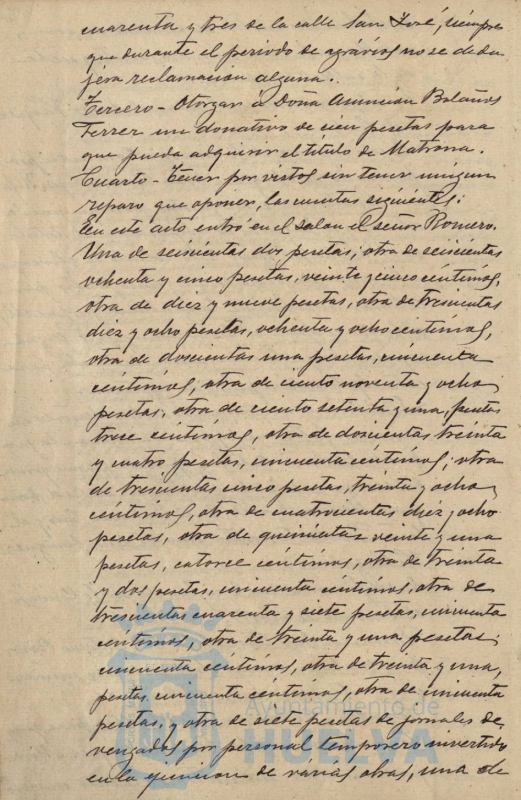 cuarenta y tres de la calle San José, siempre
que durante el periodo de agrávios no se dedu
jera reclamacion alguna.
Tercero - Otorgar á Doña Asuncion Bolaños
Ferrer un donativo de cien pesetas para
que pueda adquirir el título de Matrona.
Cuarto - Tener por vistos sin tener ningun
reparo que aponer, las cuentas siguientes:
En este acto entró en el salon el señor Romero.
Una de seiscientas dos pesetas; otra de seiscientas
ochenta y cinco pesetas, veinte y cinco céntimos,
otra de diez y nueve pesetas, otra de trescientas
diez y ocho pesetas, ochenta y ocho centimos,
otra de doscientas una pesetas, cincuenta
céntimos, otra de ciento noventa y ocho
pesetas, otra de ciento setenta y una, pesetas
trece céntimos, otra de doscientas treinta
y cuatro pesetas, cincuenta centimos; otra
de trescientas cinco pesetas, treinta y ocho
céntimos, otra de cuatrocientas diez y ocho
pesetas, otra de quinientas veinte y una
pesetas, catorce céntimos, otra de treinta
y dos pesetas, cincuenta céntimos, otra de
trescientas cuarenta y siete pesetas, cincuenta
centimos, otra de treinta y una pesetas,
cincuenta centimos, otra de treinta y una,
pesetas cincuenta céntimos, otra de cincuenta
pesetas, y otra de siete pesetas de jornales de
vengados por personal temporero invertido
en la ejecucion de várias obras, una de
Ayuntamiento de
HUELVA